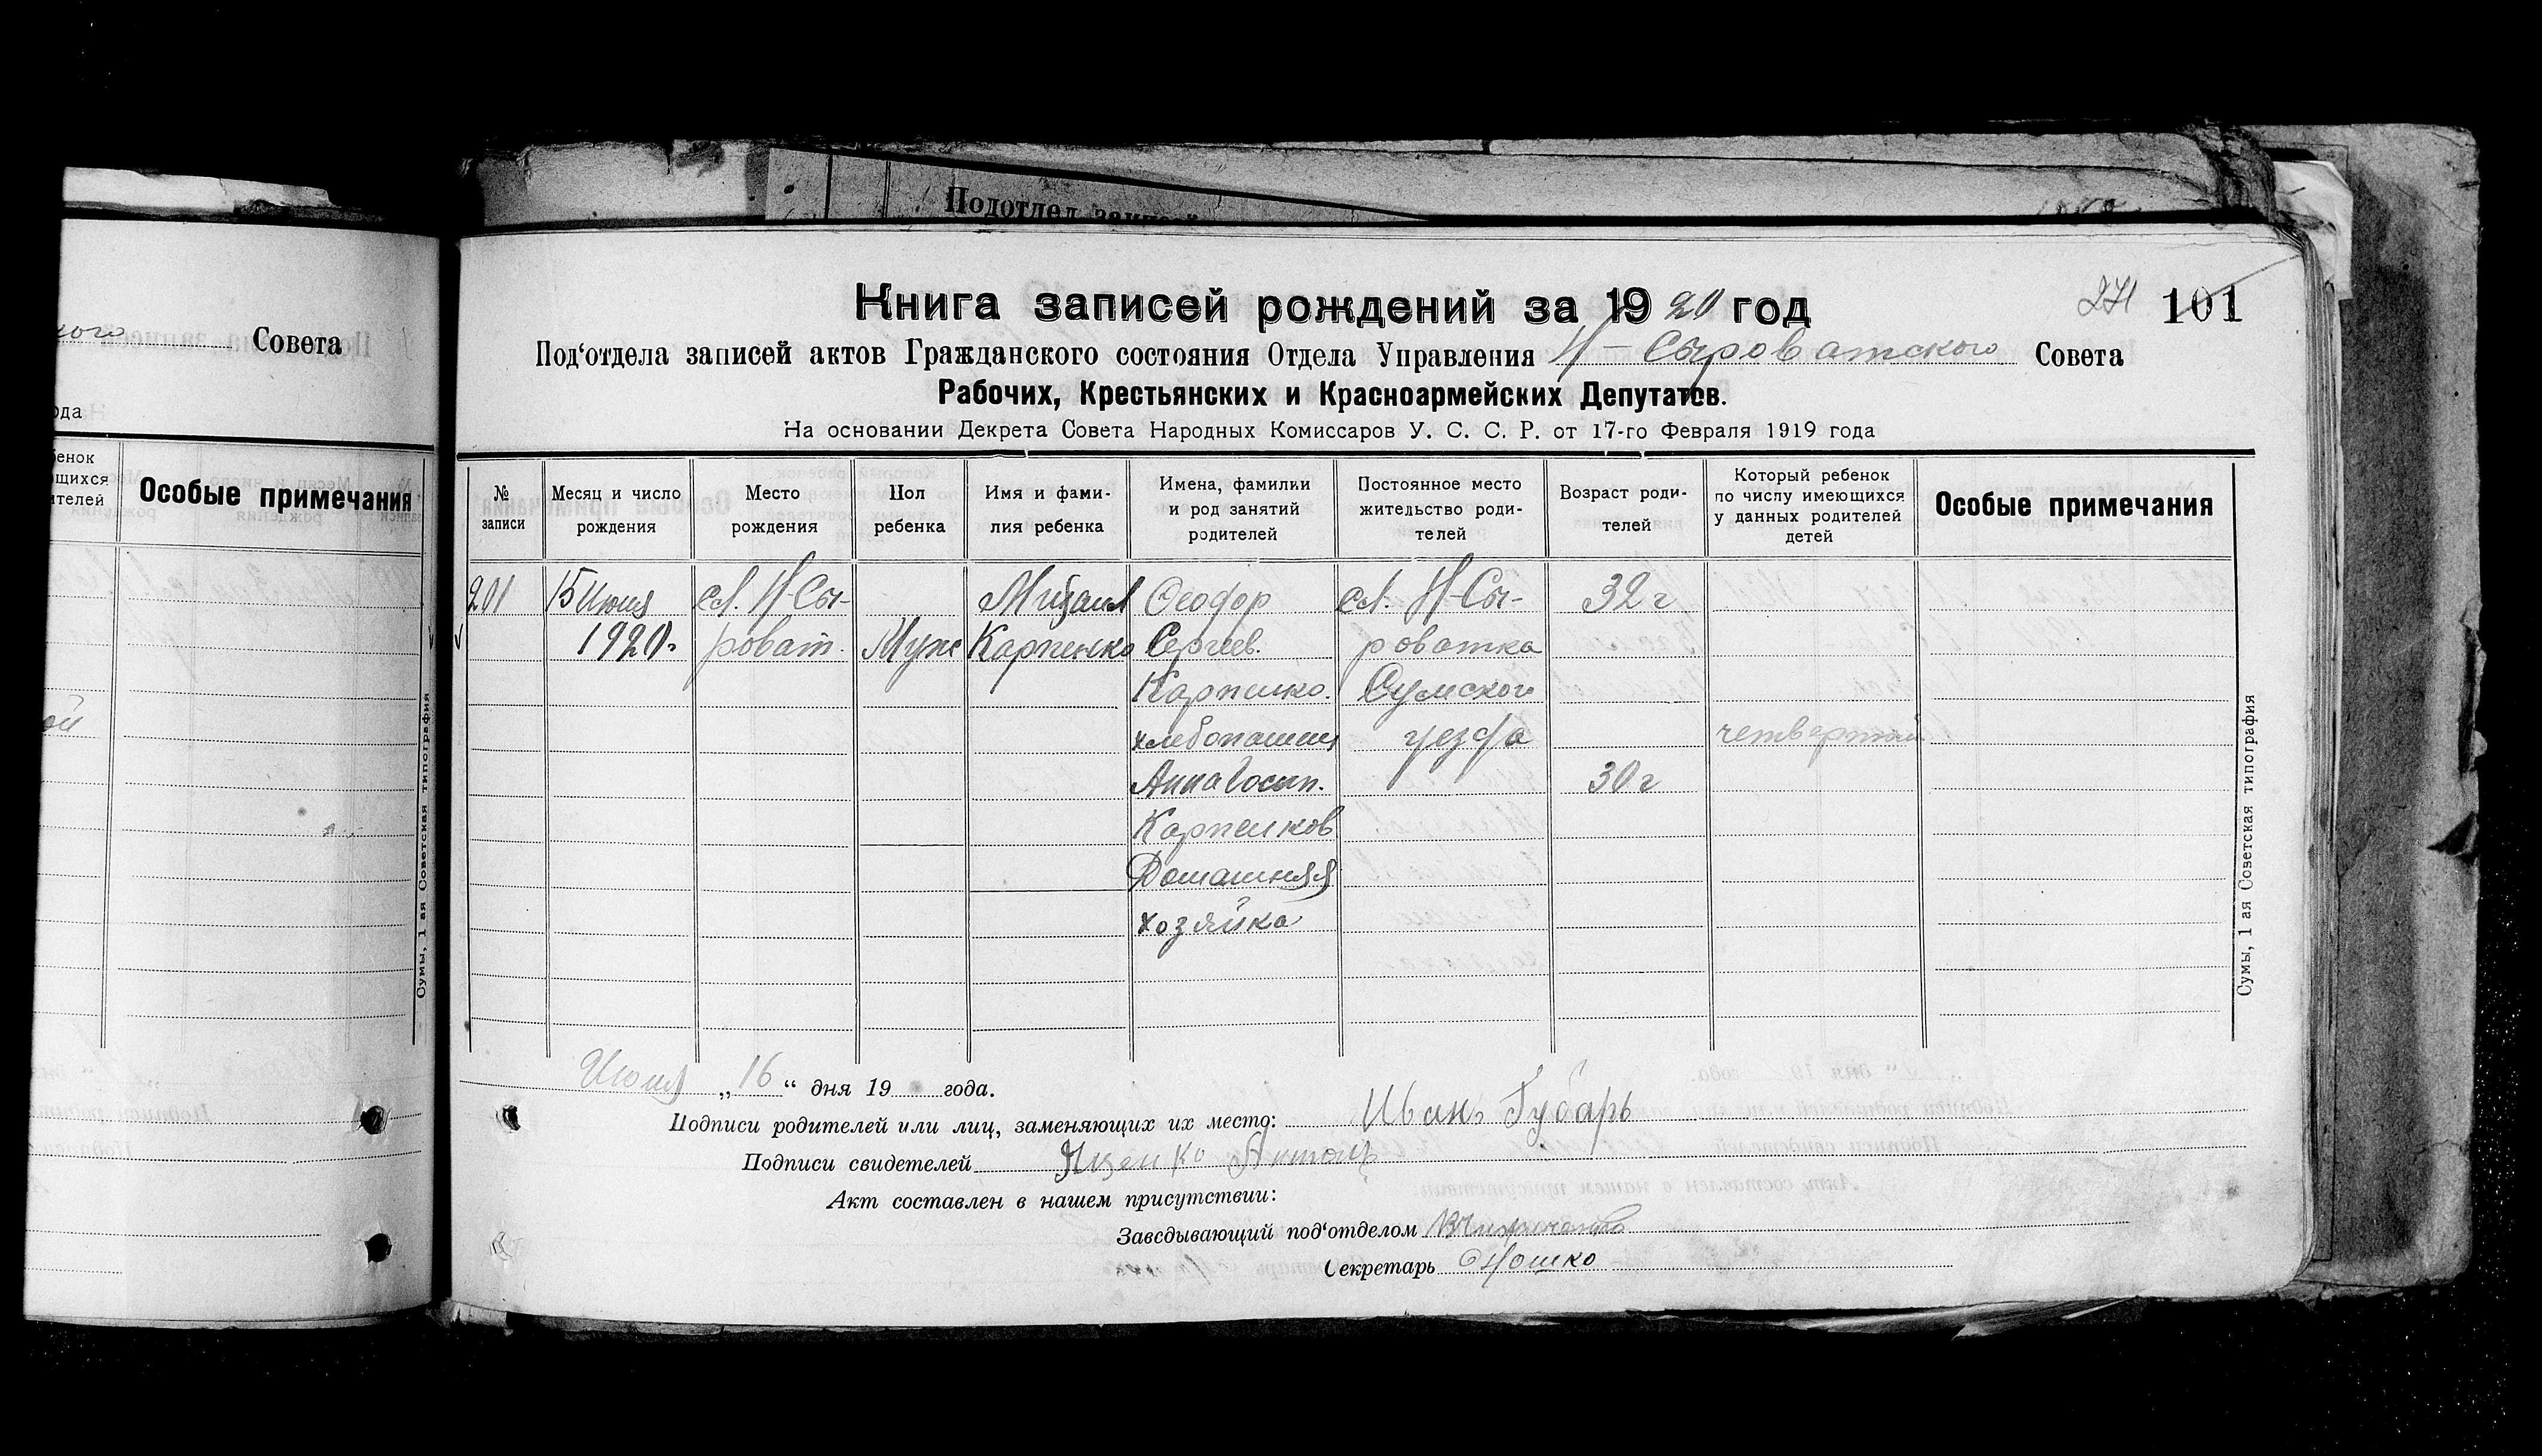 Подотдел записей
кого Совета
ода
енок
щихся
ителей
Особые примечания
ой
Сумы, 1 ая Советская типография
Книга записей рождений за 1920 год
271 101
Под‘отдела записей актов Гражданского состояния Отдела Управления Н-Сыроватского Совета
Рабочих, Крестьянских и Красноармейских Депутатов.
На основании Декрета Совета Народных Комиссаров У. С. С. Р. от 17-го Февраля 1919 года
№ записи
Месяц и число рождения
Место рождения
Пол ребенка
Имя и фами-лия ребенка
Имена, фамилии и род занятий родителей
Постоянное место жительство роди-телей
Возраст роди-телей
Который ребенок по числу имеющихся у данных родителей детей
Особые примечания
201 15 Июня сл. Н-Сы- Михаил Феодор сл. Н-Сы- 32 г
1920г. роват. Муж Карпенко Сергеев. роватка
Карпенко. Сумского
хлебопашец уезда четвертый
Анна Іосип. 30 г
Карпенков
Домашняя
хозяйка
Сумы, 1 ая Советская типография
Июня „16“ дня 19 года.
Подписи родителей или лиц, заменяющих их место: Иванъ Губарь
Подписи свидетелей Яценко Антонъ
Акт составлен в нашем присутствии:
Заведывающий под‘отделом
Секретарь